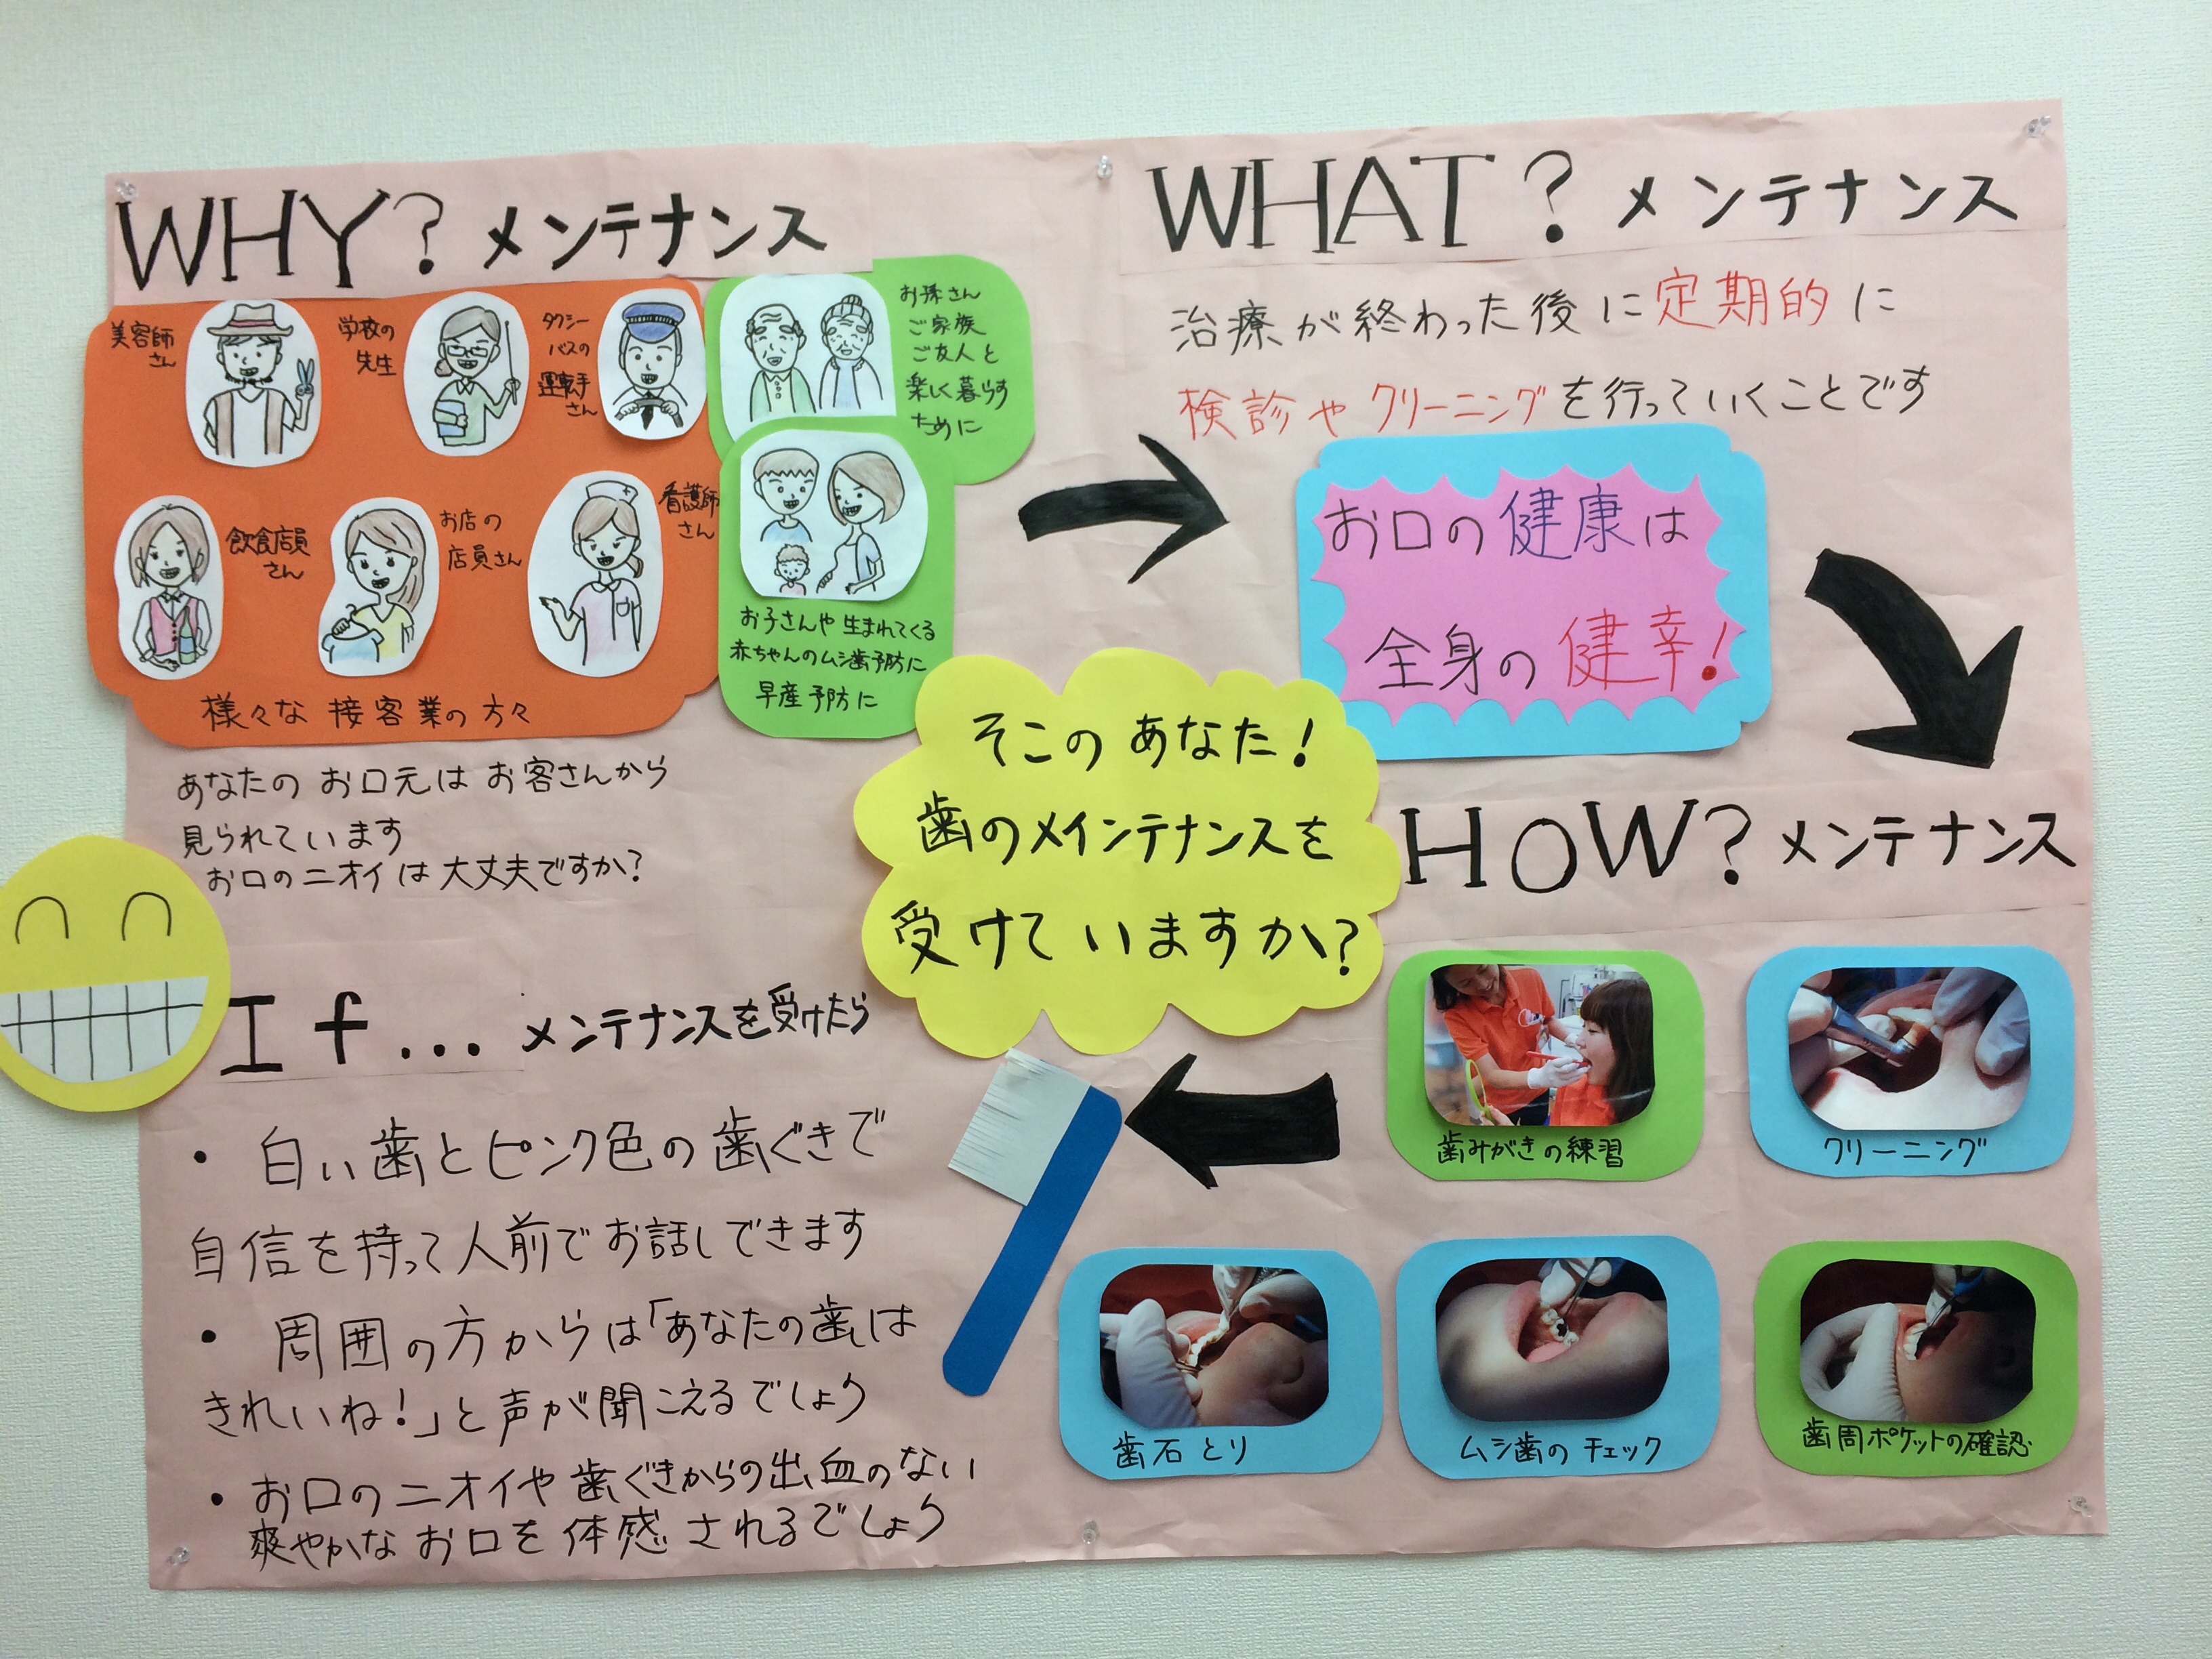 WHY? メンテナンス
美容師
さん
学校の
先生
タクシー
バスの
運転手
さん
飲食店員
さん
お店の
店員さん
看護師
さん
様々な 接客業の方々
お孫さん
ご家族
ご友人と
楽しく暮らす
ために
お子さんや生まれてくる
赤ちゃんのムシ歯予防に
早産予防に
あなたの お口元は お客さんから
見られています
お口のニオイは大丈夫ですか?
WHAT? メンテナンス
治療が終わった後に定期的に
検診やクリーニングを行っていくことです
お口の健康は
全身の健幸!
そこの あなた!
歯のメインテナンスを
受けていますか?
HOW? メンテナンス
歯みがきの練習
クリーニング
歯石とり
ムシ歯のチェック
歯周ポケットの確認
If... メンテナンスを受けたら
・ 白い歯とピンク色の歯ぐきで
自信を持って人前でお話しできます
・ 周囲の方からは「あなたの歯は
きれいね!」と声が聞こえるでしょう
・ お口のニオイや歯ぐきからの出血のない
爽やかなお口を体感されるでしょう